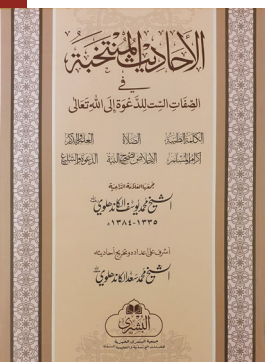 الأحاديث المنتخبة
في
الصفات الست للدعوة إلى الله تعالى
الكلمة الطيبة الصلاة العلم والذكر
إكرام المسلم الإخلاص تصحيح النية الدعوة والتبليغ
الشيخ محمد يوسف الكاندهلوي
١٣٣٥-١٣٨٤ه
أشرف على إعداده وتخريج أحاديثه
الشيخ محمد سعد الكاندهلوي
البشرى